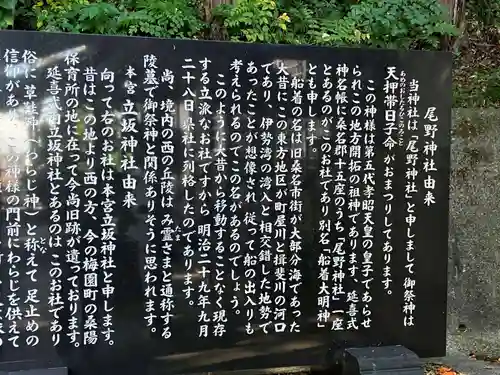 尾野神社由来
当神社は「尾野神社」と申しまして御祭神は
天押帯日子命がおまつりしてあります。
あめのおしたらしひこのみこと
この神様は第五代孝昭天皇の皇子であらせ
られこの地方開拓の祖神であります、延喜式
神名帳に桑名郡十五座のうち「尾野神社」一座
とあるのがこのお社であり別名「船着大明神」
とも申します。
船着の名は旧桑名市街が大部分海であった
大昔にこの東方地区が町屋川と揖斐川の河口
であり、伊勢湾の湾入と相交錯した地勢で
あったことが想像され、従って船の出入りも
考えられるのでこの名があるのでしょう。
このように大昔から移動することなく現存
する立派なお社ですから明治二十九年九月
二十八日県社に列格したのであります。
尚、境内の西の丘陵はみ霊さまと通称する
たま
陵墓で御祭神と関係ありそうに思われます。
本宮 立坂神社由来
向って右のお社は本宮立坂神社と申します。
昔はこの地より西の方、今の梅園町の桑陽
保育所の地に在って今尚旧跡が遺っております。
延喜式内立坂神社とあるのは、このお社であり
俗に草鞋神(わらじ神)と称えて足止めの
信仰があり、この神様の門前にわらじを供えて